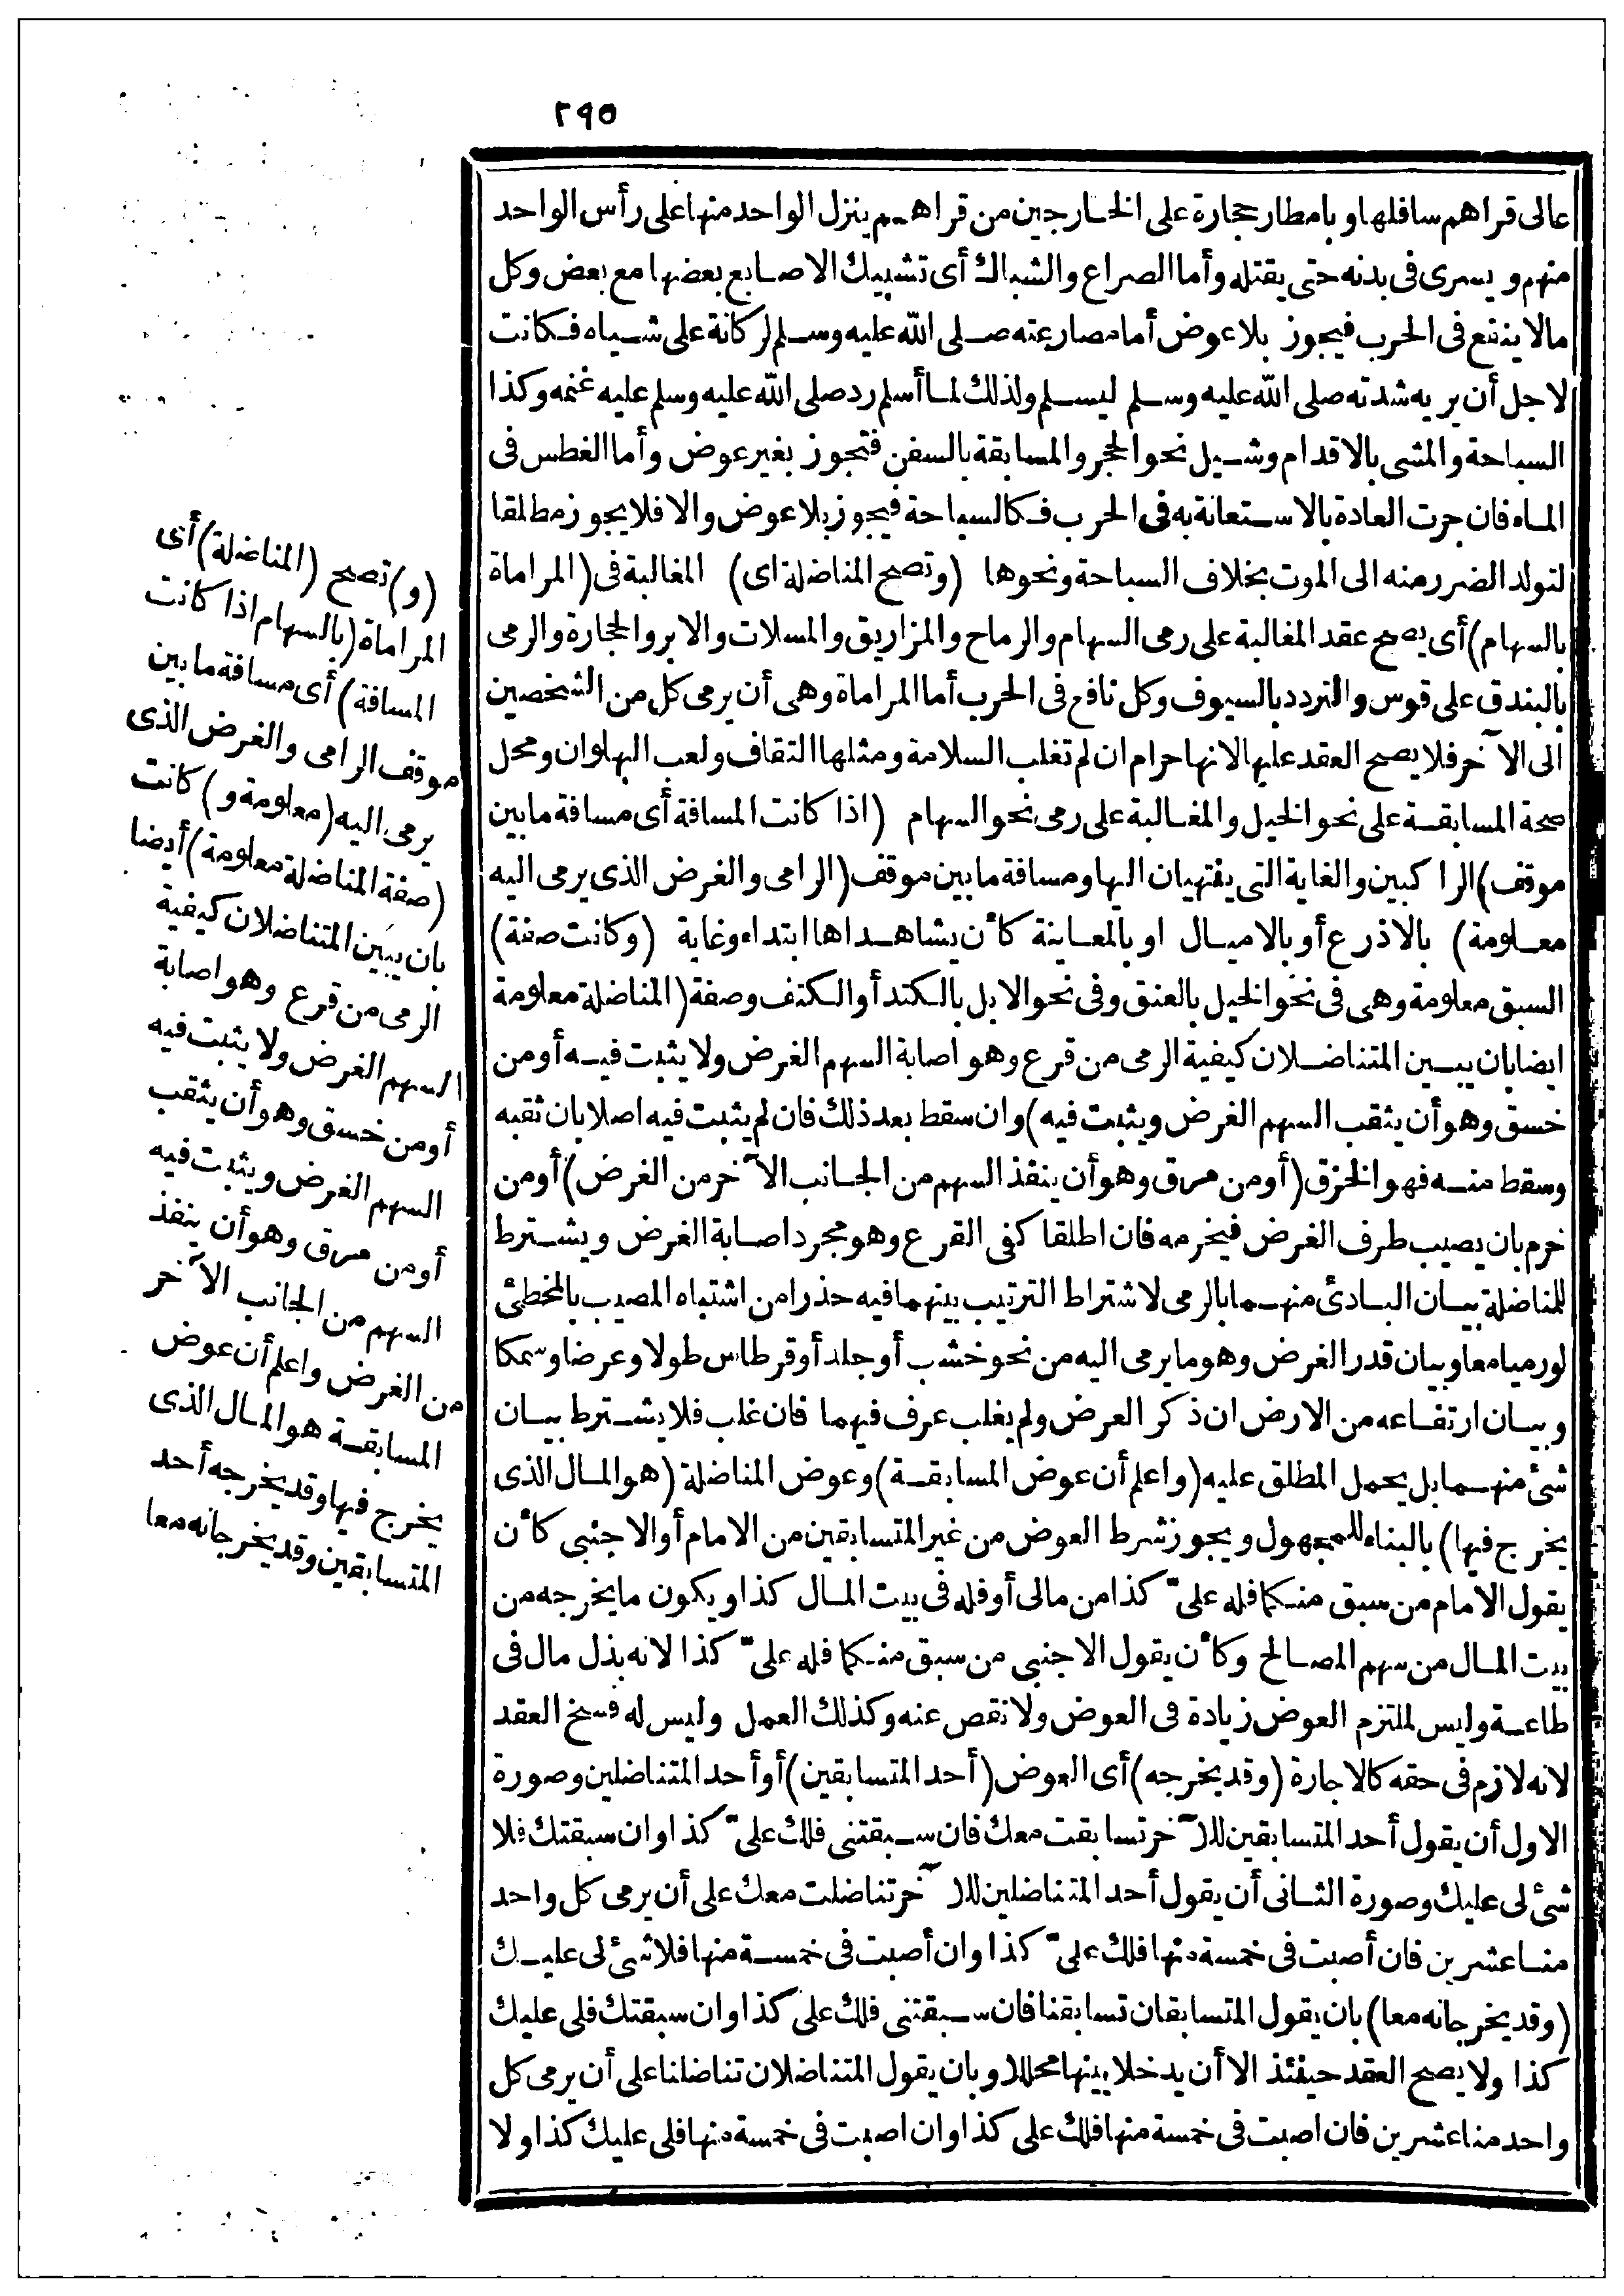 ٢٩٥
عالى قراهم سافلها و بامطار حجارة على الخارجين من قراهم ينزل الواحد منها على رأس الواحد
منهم و يسرى فى بدنه حتى يقتله وأما الصراع والشباك أى تشبيك الاصابع بعضها مع بعض وكل
مالا ينفع فى الحرب فيجوز بلا عوض أما مصارعته صلى الله عليه وسلم لركانة على شياه فكانت
لاجل أن يريه شدته صلى الله عليه وسلم ليسلم ولذلك لما أسلم رد صلى الله عليه وسلم عليه غنمه وكذا
السباحة والمشى بالاقدام وشيل نحو الحجر والمسابقة بالسفن فتجوز بغير عوض وأما الغطس فى
الماء فان جرت العادة بالاستعانة به فى الحرب فكالسباحة فيجوز بلا عوض والا فلا يجوز مطلقا
لتولد الضرر منه الى الموت بخلاف السباحة ونحوها (وتصح المناضلة اى) المغالبة فى (المراماة
بالسهام) أى يصح عقد المغالبة على رمى السهام والرماح والمزاريق والمسلات والابر والحجارة والرمى
بالبندق على قوس والتردد بالسيوف وكل نافع فى الحرب أما المراماة وهى أن يرمى كل من الشخصين
الى الآخر فلا يصح العقد عليها لانها حرام ان لم تغلب السلامة ومثلها التقاف ولعب البهلوان ومحل
صحة المسابقة على نحو الخيل والمغالبة على رمى نحو السهام (اذا كانت المسافة أى مسافة ما بين
موقف) الراكبين والغاية التى ينتهيان اليها ومسافة ما بين موقف (الرامى والغرض الذى يرمى اليه
معلومة) بالاذرع أو بالاميال او بالمعاينة كأن يشاهداها ابتداء وغاية (وكانت صفة)
السبق معلومة وهى فى نحو الخيل بالعنق وفى نحو الابل بالكتد أو الكتف وصفة (المناضلة معلومة
ايضا بان يبين المتناضلان كيفية الرمى من قرع وهو اصابة السهم الغرض ولا يثبت فيه أو من
خسق وهو أن يثقب السهم الغرض ويثبت فيه) وان سقط بعد ذلك فان لم يثبت فيه اصلا بان ثقبه
وسقط منه فهو الخزق (أو من مرق وهو أن ينفذ السهم من الجانب الآخر من الغرض) أو من
خرم بان يصيب طرف الغرض فيخرمه فان اطلقا كفى القرع وهو مجرد اصابة الغرض ويشترط
للمناضلة بيان البادئ منهما بالرمى لاشتراط الترتيب بينهما فيه حذرا من اشتباه المصيب بالمخطئ
لو رميا معا وبيان قدر الغرض وهو ما يرمى اليه من نحو خشب أو جلد أو قرطاس طولا وعرضا وسمكا
وبيان ارتفاعه من الارض ان ذكر العرض ولم يغلب عرف فيهما فان غلب فلا يشترط بيان
شئ منهما بل يحمل المطلق عليه (واعلم أن عوض المسابقة) وعوض المناضلة (هو المال الذى
يخرج فيها) بالبناء للمجهول ويجوز شرط العوض من غير المتسابقين من الامام أو الاجنبى كأن
يقول الامام من سبق منكما فله علىّ كذا من مالى أو فله فى بيت المال كذا ويكون ما يخرجه من
بيت المال من سهم المصالح وكأن يقول الاجنبى من سبق منكما فله علىّ كذا لانه بذل مال فى
طاعة وليس لملتزم العوض زيادة فى العوض ولا نقص عنه وكذلك العمل وليس له فسخ العقد
لانه لازم فى حقه كالاجارة (وقد يخرجه) أى العوض (أحد المتسابقين) أو أحد المتناضلين وصورة
الاول أن يقول أحد المتسابقين للآخر تسابقت معك فان سبقتنى فلك علىّ كذا وان سبقتك فلا
شئ لى عليك وصورة الثانى أن يقول أحد المتناضلين للآخر تناضلت معك على أن يرمى كل واحد
منا عشرين فان أصبت فى خمسة منها فلك علىّ كذا وان أصبت فى خمسة منها فلا شئ لى عليك
(وقد يخرجانه معا) بان يقول المتسابقان تسابقنا فان سبقتنى فلك على كذا وان سبقتك فلى عليك
كذا ولا يصح العقد حينئذ الا أن يدخلا بينهما محللا وبان يقول المتناضلان تناضلنا على أن يرمى كل
واحد منا عشرين فان اصبت فى خمسة منها فلك على كذا وان اصبت فى خمسة منها فلى عليك كذا ولا
(و) تصح (المناضلة) أى
المراماة (بالسهام اذا كانت
المسافة) أى مسافة ما بين
موقف الرامى والغرض الذى
يرمى اليه (معلومة و) كانت
(صفة المناضلة معلومة) أيضا
بان يبين المتناضلان كيفية
الرمى من قرع وهو اصابة
السهم الغرض ولا يثبت فيه
أو من خسق وهو أن يثقب
السهم الغرض ويثبت فيه
أو من مرق وهو أن ينفذ
السهم من الجانب الآخر
من الغرض واعلم أن عوض
المسابقة هو المال الذى
يخرج فيها وقد يخرجه أحد
المتسابقين وقد يخرجانه معا